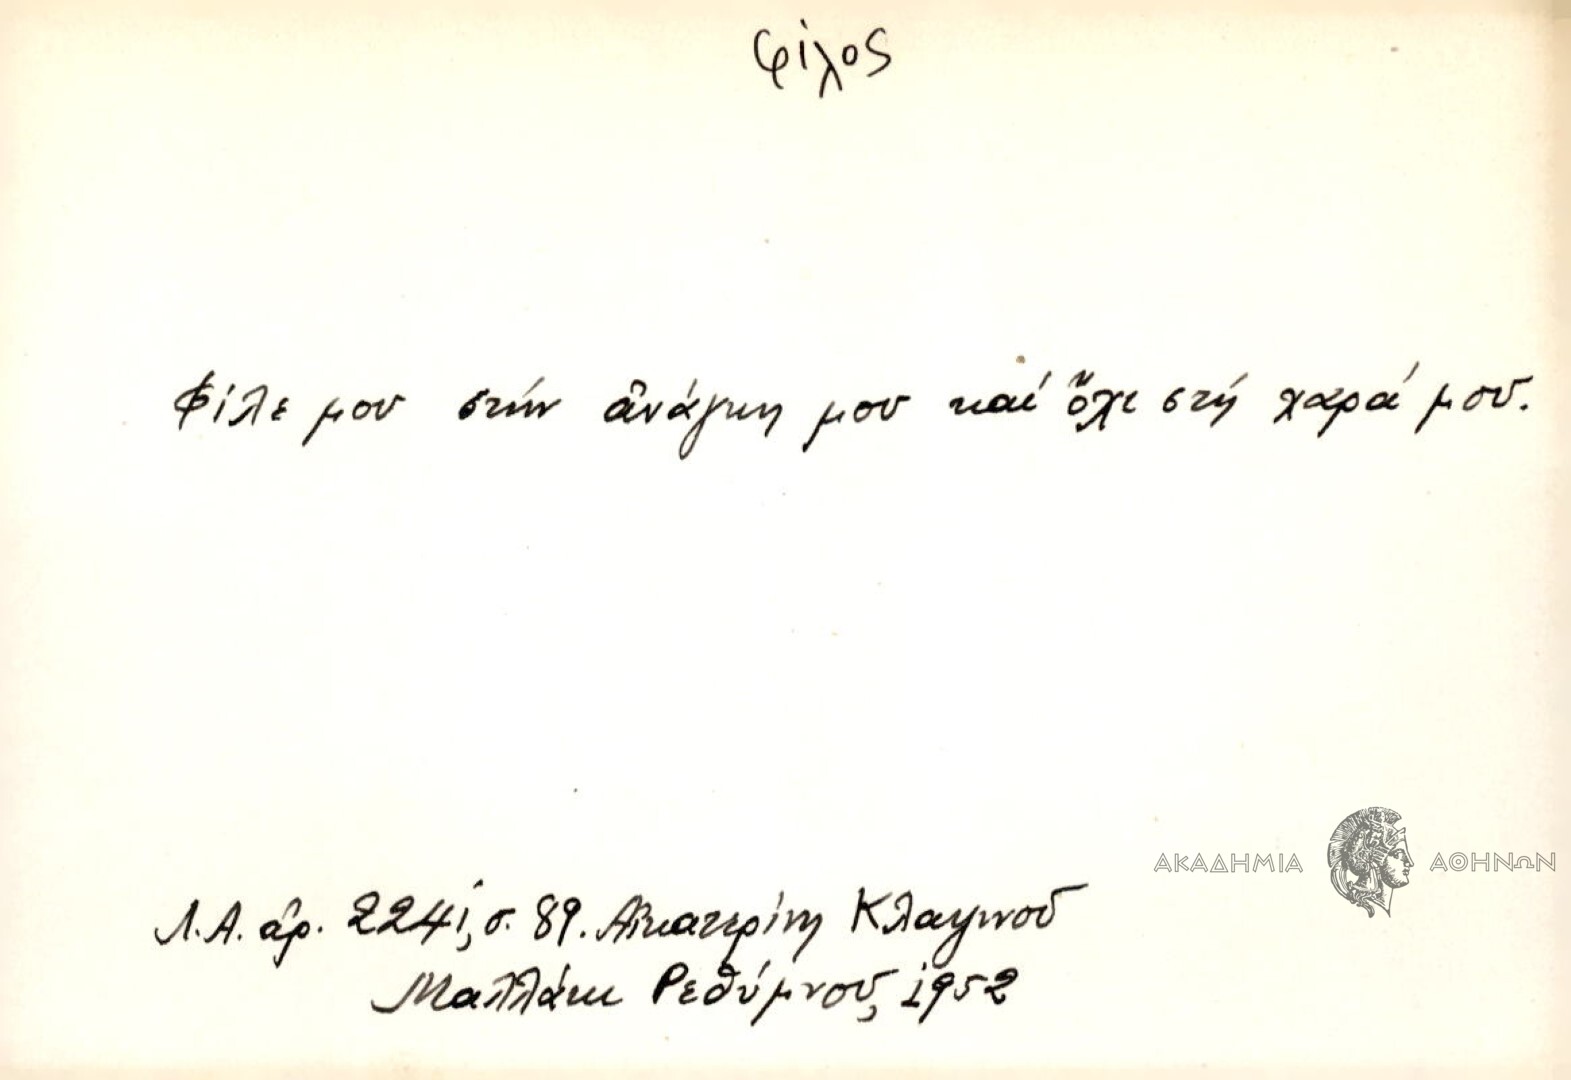 φίλος
Φίλε μου στήν ἀνάγκη μου καί ὄχι στή χαρά μου.
ΑΚΑΔΗΜΙΑ ΑΘΗΝΩΝ
Λ.Α. ἀρ. 2241, σ. 89. Αἰκατερίνη
Μαλλάκι Ρεθύμνου, 1952